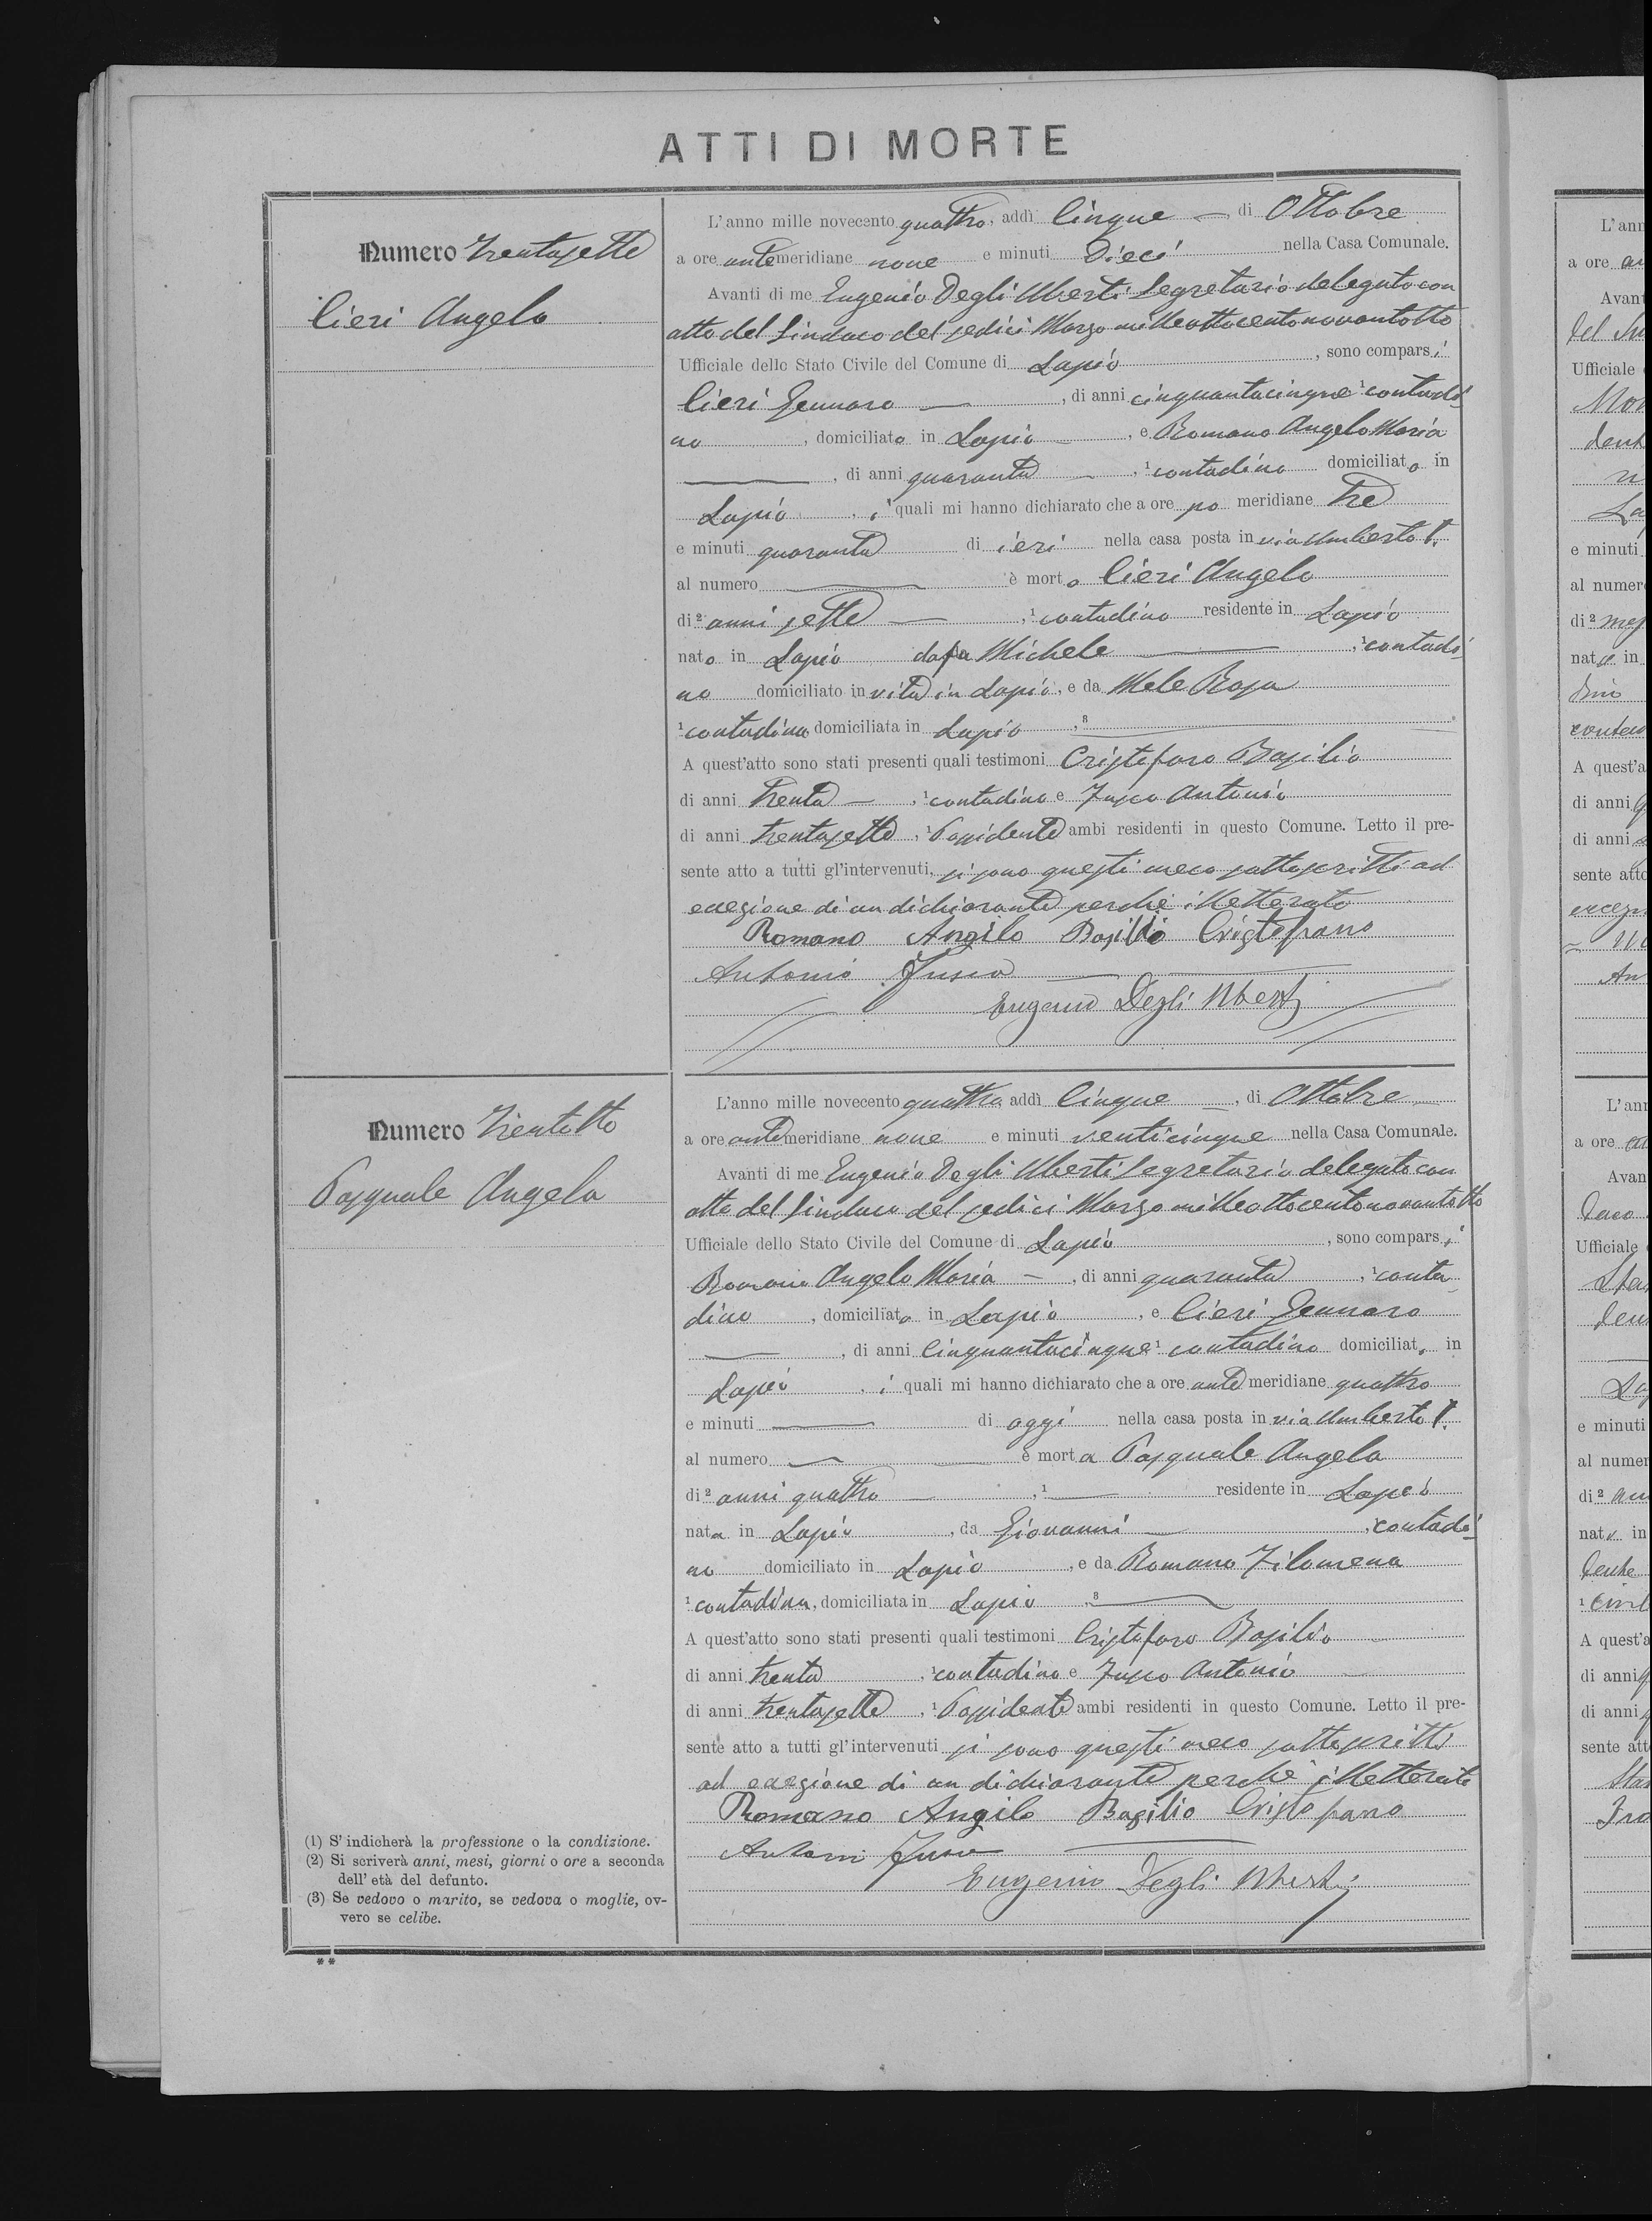 ATTI DI MORTE
Numero Trentasette
Cieri Angelo
L'anno mille novecento quattro, addì Cinque di Ottobre
a ore antemeridiane nove e minuti Dieci nella Casa Comunale.
Avanti di me Eugenio Degli Uberti Segretario delegato con
atto del Sindaco del sedici Marzo milleottocentonovantotto
Ufficiale dello Stato Civile del Comune di Lapio, sono comparsi
Cieri Gennaro, di anni cinquantacinque 1 contadi
no, domiciliato in Lapio, e Romano Angelo Maria
, di anni quaranta, 1 contadino domiciliato in
Lapio, i quali mi hanno dichiarato che a ore po meridiane tre
e minuti quaranta di ieri nella casa posta in via Umberto I.
al numero è morto Cieri Angelo
di 2 anni sette, 1 contadino residente in Lapio
nato in Lapio da fu Michele, contadi
no domiciliato in vita in Lapio, e da Mele Rosa
1 contadina domiciliata in Lapio, 3
A quest'atto sono stati presenti quali testimoni Cristofaro Basilio
di anni Trenta, 1 contadino e Fusco Antonio
di anni trentasette, 1 Possidente ambi residenti in questo Comune. Letto il pre-
sente atto a tutti gl'intervenuti, si sono questi meco sottoscritti ad
eccezione di un dichiarante perchè illetterato
Romano Angilo Basilio Cristofano
Antonio Fusco
Eugenio Degli Uberti
Numero Trentotto
Pasquale Angela
L'anno mille novecento quattro addì Cinque, di Ottobre
a ore antemeridiane nove e minuti venticinque nella Casa Comunale.
Avanti di me Eugenio Degli Uberti Segretario delegato con
atto del Sindaco del sedici Marzo milleottocentonovantotto
Ufficiale dello Stato Civile del Comune di Lapio, sono comparsi
Romano Angelo Maria, di anni quaranta, 1 conta
dino, domiciliato in Lapio, e Cieri Gennaro
, di anni Cinquantacinque 1 contadino domiciliato in
Lapio, i quali mi hanno dichiarato che a ore antemeridiane quattro
e minuti di oggi nella casa posta in via Umberto I.
al numero è morta Pasquale Angela
di 2 anni quattro, 1 residente in Lapio
nata in Lapio, da Giovanni, contadi
no domiciliato in Lapio, e da Romano Filomena
1 contadina, domiciliata in Lapio, 3
A quest'atto sono stati presenti quali testimoni Cristofaro Basilio
di anni trenta, 1 contadino e Fusco Antonio
di anni trentasette, 1 Possidente ambi residenti in questo Comune. Letto il pre-
sente atto a tutti gl'intervenuti si sono questi meco sottoscritti
ad eccezione di un dichiarante perchè illetterato
Romano Angilo Basilio Cristofano
Antoni Fusco
Eugenio Degli Uberti
(1) S'indicherà la professione o la condizione.
(2) Si scriverà anni, mesi, giorni o ore a seconda
dell'età del defunto.
(3) Se vedovo o marito, se vedova o moglie, ov-
vero se celibe.
**